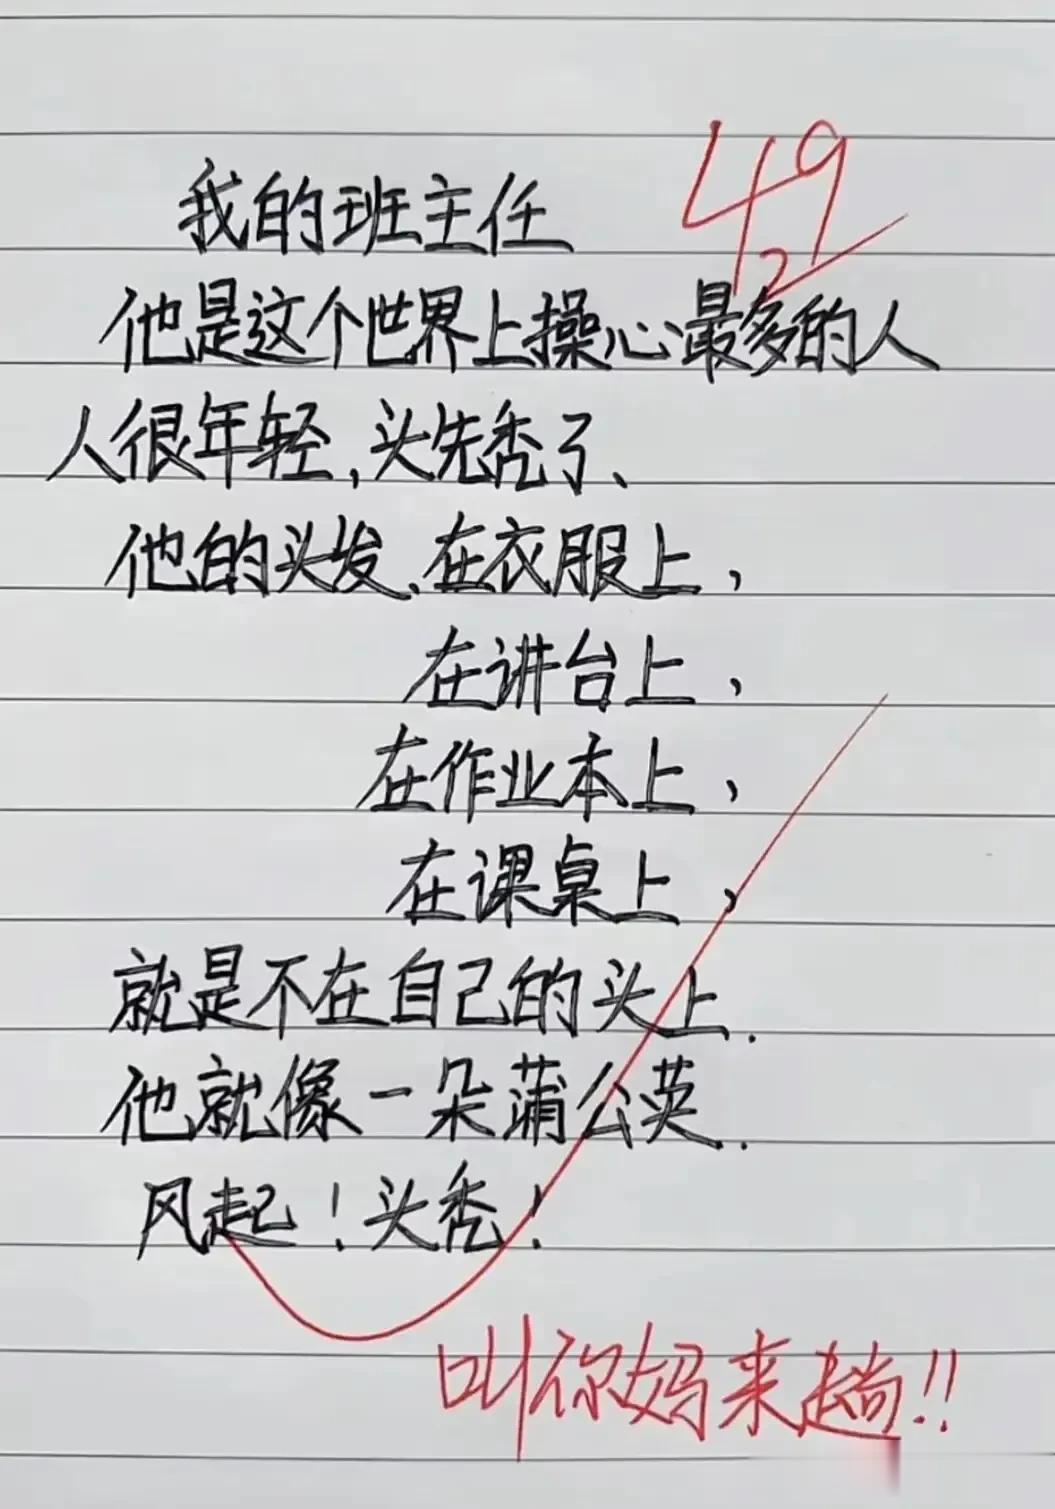 我的班主任
49
2
他是这个世界上操心最多的人
人很年轻,头先秃了、
他的头发、在衣服上,
在讲台上,
在作业本上,
在课桌上,
就是不在自己的头上.
他就像一朵蒲公英.
风起!头秃!
叫你妈来趟!!